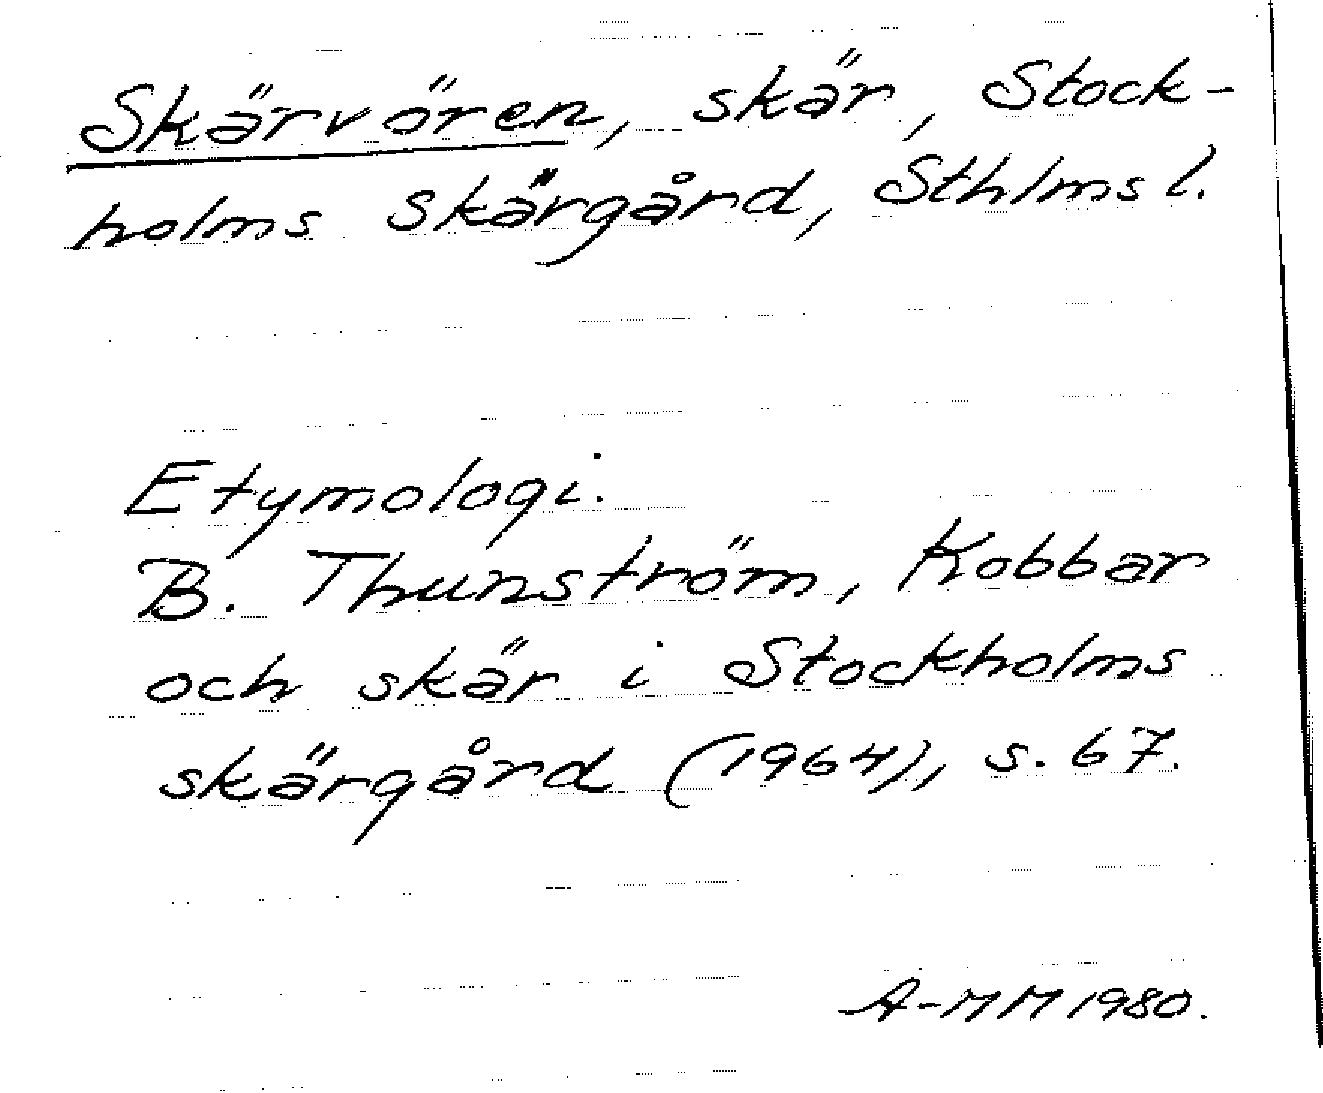 Skärvören, skär, Stock-
holms skärgård, Sthlms l.
Etymologi.
B. Thunström, Kobbar
och skär i Stockholms
skärgård (1964), s. 67.
A-MM 1980.